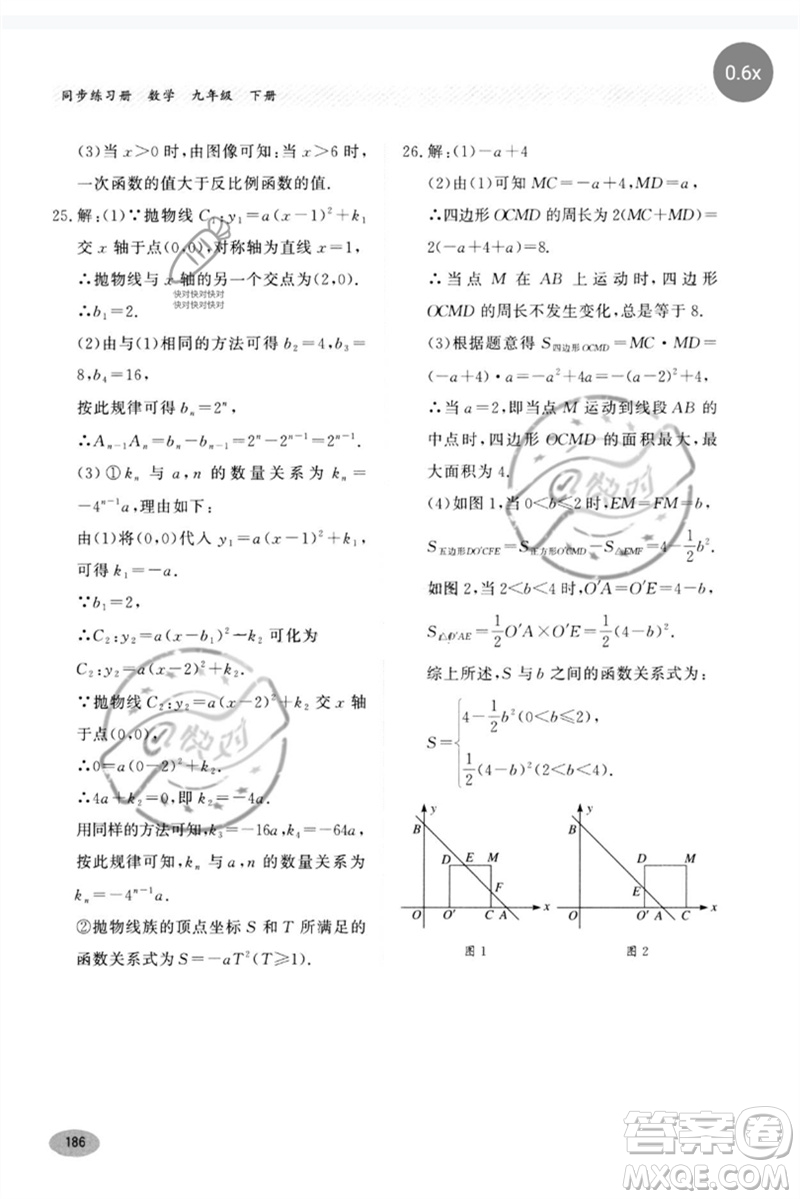 0.6x
同步练习册 数学 九年级 下册
(3)当 x>0 时,由图像可知:当 x>6 时,
一次函数的值大于反比例函数的值.
25.解:(1)∵抛物线 C₁:y₁=a(x-1)²+k₁
交 x 轴于点(0,0),对称轴为直线 x=1,
∴抛物线与 x 轴的另一个交点为(2,0).
∴b₁=2.
(2)由与(1)相同的方法可得 b₂=4,b₃=
8,b₄=16,
按此规律可得 bₙ=2ⁿ,
∴Aₙ₋₁Aₙ=bₙ-bₙ₋₁=2ⁿ-2ⁿ⁻¹=2ⁿ⁻¹.
(3)①kₙ 与 a,n 的数量关系为 kₙ=
-4ⁿ⁻¹a,理由如下:
由(1)将(0,0)代入 y₁=a(x-1)²+k₁,
可得 k₁=-a.
∵b₁=2,
∴C₂:y₂=a(x-b₁)²-k₂ 可化为
C₂:y₂=a(x-2)²+k₂.
∵抛物线 C₂:y₂=a(x-2)²+k₂ 交 x 轴
于点(0,0),
∴0=a(0-2)²+k₂.
∴4a+k₂=0,即 k₂=-4a.
用同样的方法可知,k₃=-16a,k₄=-64a,
按此规律可知,kₙ 与 a,n 的数量关系为
kₙ=-4ⁿ⁻¹a.
②抛物线族的顶点坐标 S 和 T 所满足的
函数关系式为 S=-aT²(T≥1).
快对快对快对
快对快对快对
26.解:(1)-a+4
(2)由(1)可知 MC=-a+4,MD=a,
∴四边形 OCMD 的周长为 2(MC+MD)=
2(-a+4+a)=8.
∴当点 M 在 AB 上运动时,四边形
OCMD 的周长不发生变化,总是等于 8.
(3)根据题意得 S四边形OCMD=MC·MD=
(-a+4)·a=-a²+4a=-(a-2)²+4,
∴当 a=2,即当点 M 运动到线段 AB 的
中点时,四边形 OCMD 的面积最大,最
大面积为 4.
(4)如图 1,当 0<b≤2时,EM=FM=b,
S五边形DO'CFE=S正方形O'CMD-S△EMF=4-1/2b².
如图 2,当 2<b<4 时,O'A=O'E=4-b,
S△O'AE=1/2O'A×O'E=1/2(4-b)².
综上所述,S 与 b 之间的函数关系式为:
S={4-1/2b²(0<b≤2),
1/2(4-b)²(2<b<4).
y B D E M F O O' C A x
图 1
y B D M E O O' A C x
图 2
快对
快对
186
答案圈
MXQE.COM